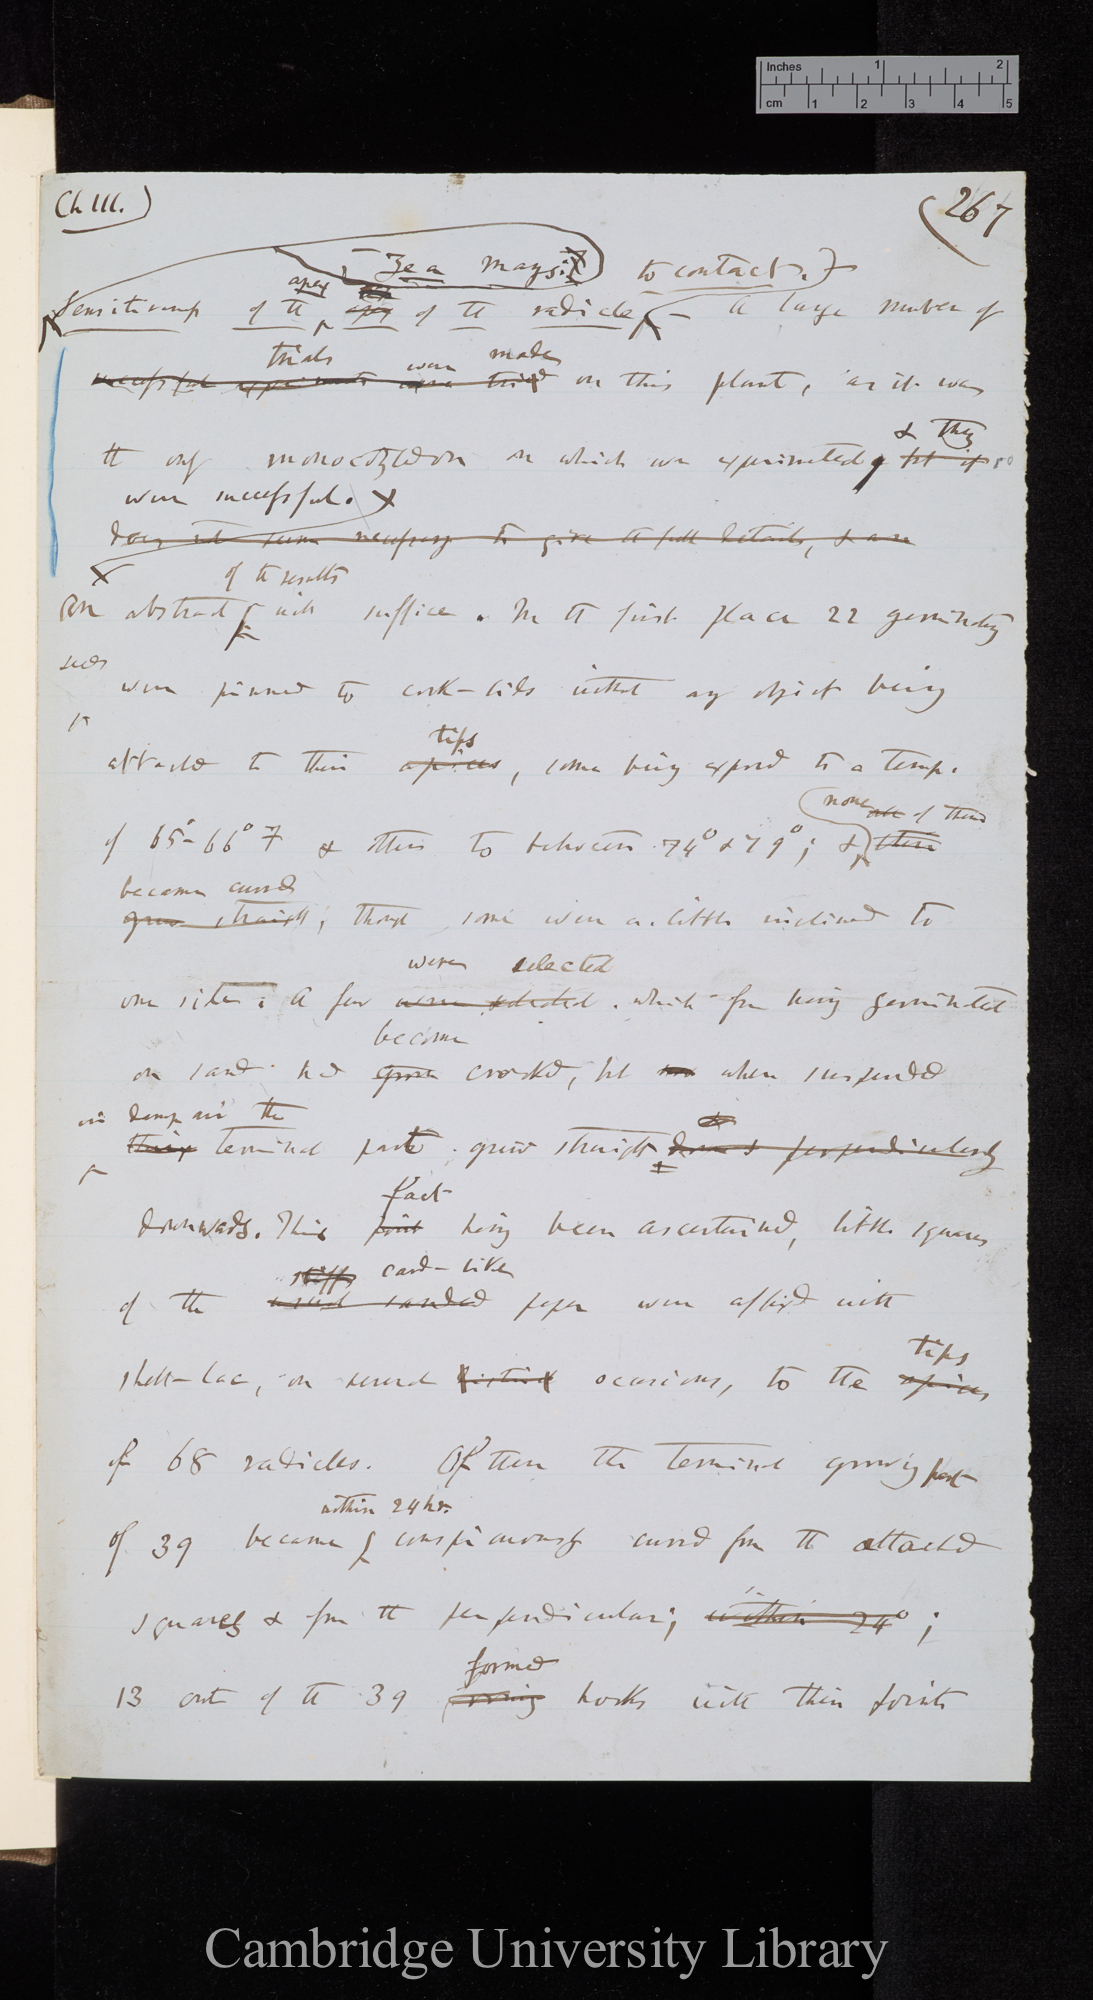 Ch III.)
(267
Zea mays:
to contact.
apex
Sensitiveness of the apex of the radicle — A large number of
trials were made
successful experiments were tried on this plant, as it was
& they
the only monocotyledon on which we experimented, but it
were successful.
does not seem necessary to give the full details, & an
of the results
An abstract will suffice. In the first place 22 germinating
seeds
were pinned to cork-lids without any object being
tips
attached to their apices, some being exposed to a temp.
none of them
of 65°-66° F & others to between 74° & 79°; &
became curved
grew straight, though some were a little inclined to
were selected
one side. A few were selected. which from having germinated
become
on sand had grown crooked, but when suspended
in damp air the
their terminal part grew straight downwards perpendicularly
fact
downwards. This point having been ascertained, little squares
stiff card-like
of the usual sanded paper were affixed with
tips
shell-lac, on several distinct occasions, to the apices
of 68 radicles. Of them the terminal growing part
within 24 hr.
of 39 became conspicuously curved from the attached
squares & from the perpendicular; within 24°;
formed
13 out of the 39 forming hooks with their points
Inches 1 2
cm 1 2 3 4 5
Cambridge University Library